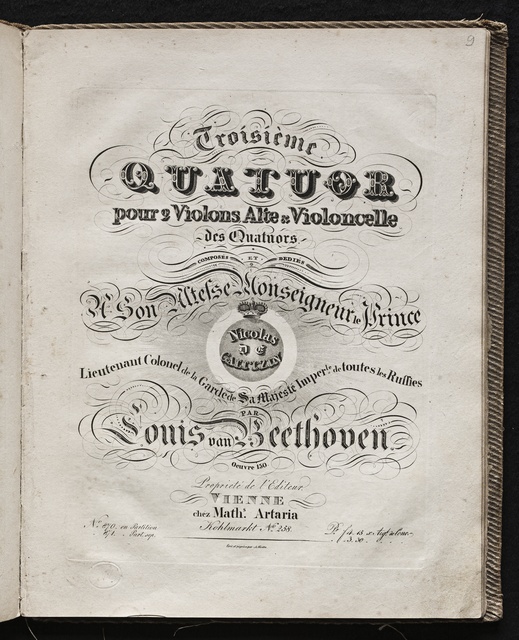 9
Troisième
QUATUOR
pour 2 Violons, Alte & Violoncelle
des Quatuors
COMPOSÉS ET DEDIÉS
A Son Altesse Monseigneur le Prince
Nicolas
DE
GALITZIN
Lieutenant Colonel de la Garde de Sa Majesté Imper.le de toutes les Russies
PAR
Louis van Beethoven.
Oeuvre 130.
Propriété de l'Editeur.
VIENNE
chez Math.s Artaria
Kohlmarkt No. 258.
No. 870. en Partition
871. Part. sep.